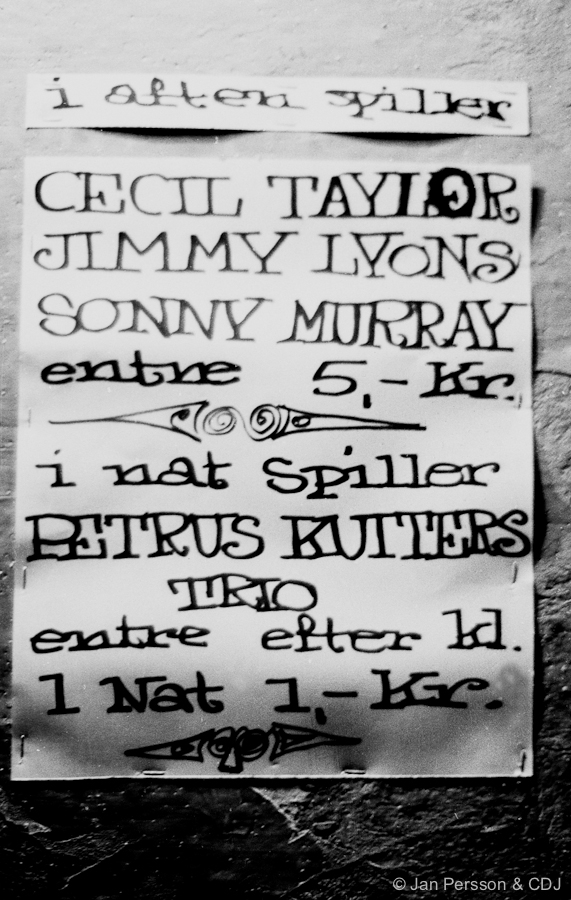 i aften spiller
CECIL TAYLOR
JIMMY LYONS
SONNY MURRAY
entre 5,- Kr.
i nat Spiller
PETRUS KUTTERS
TRIO
entre efter kl.
1 Nat 1,- Kr.
© Jan Persson & CDJ